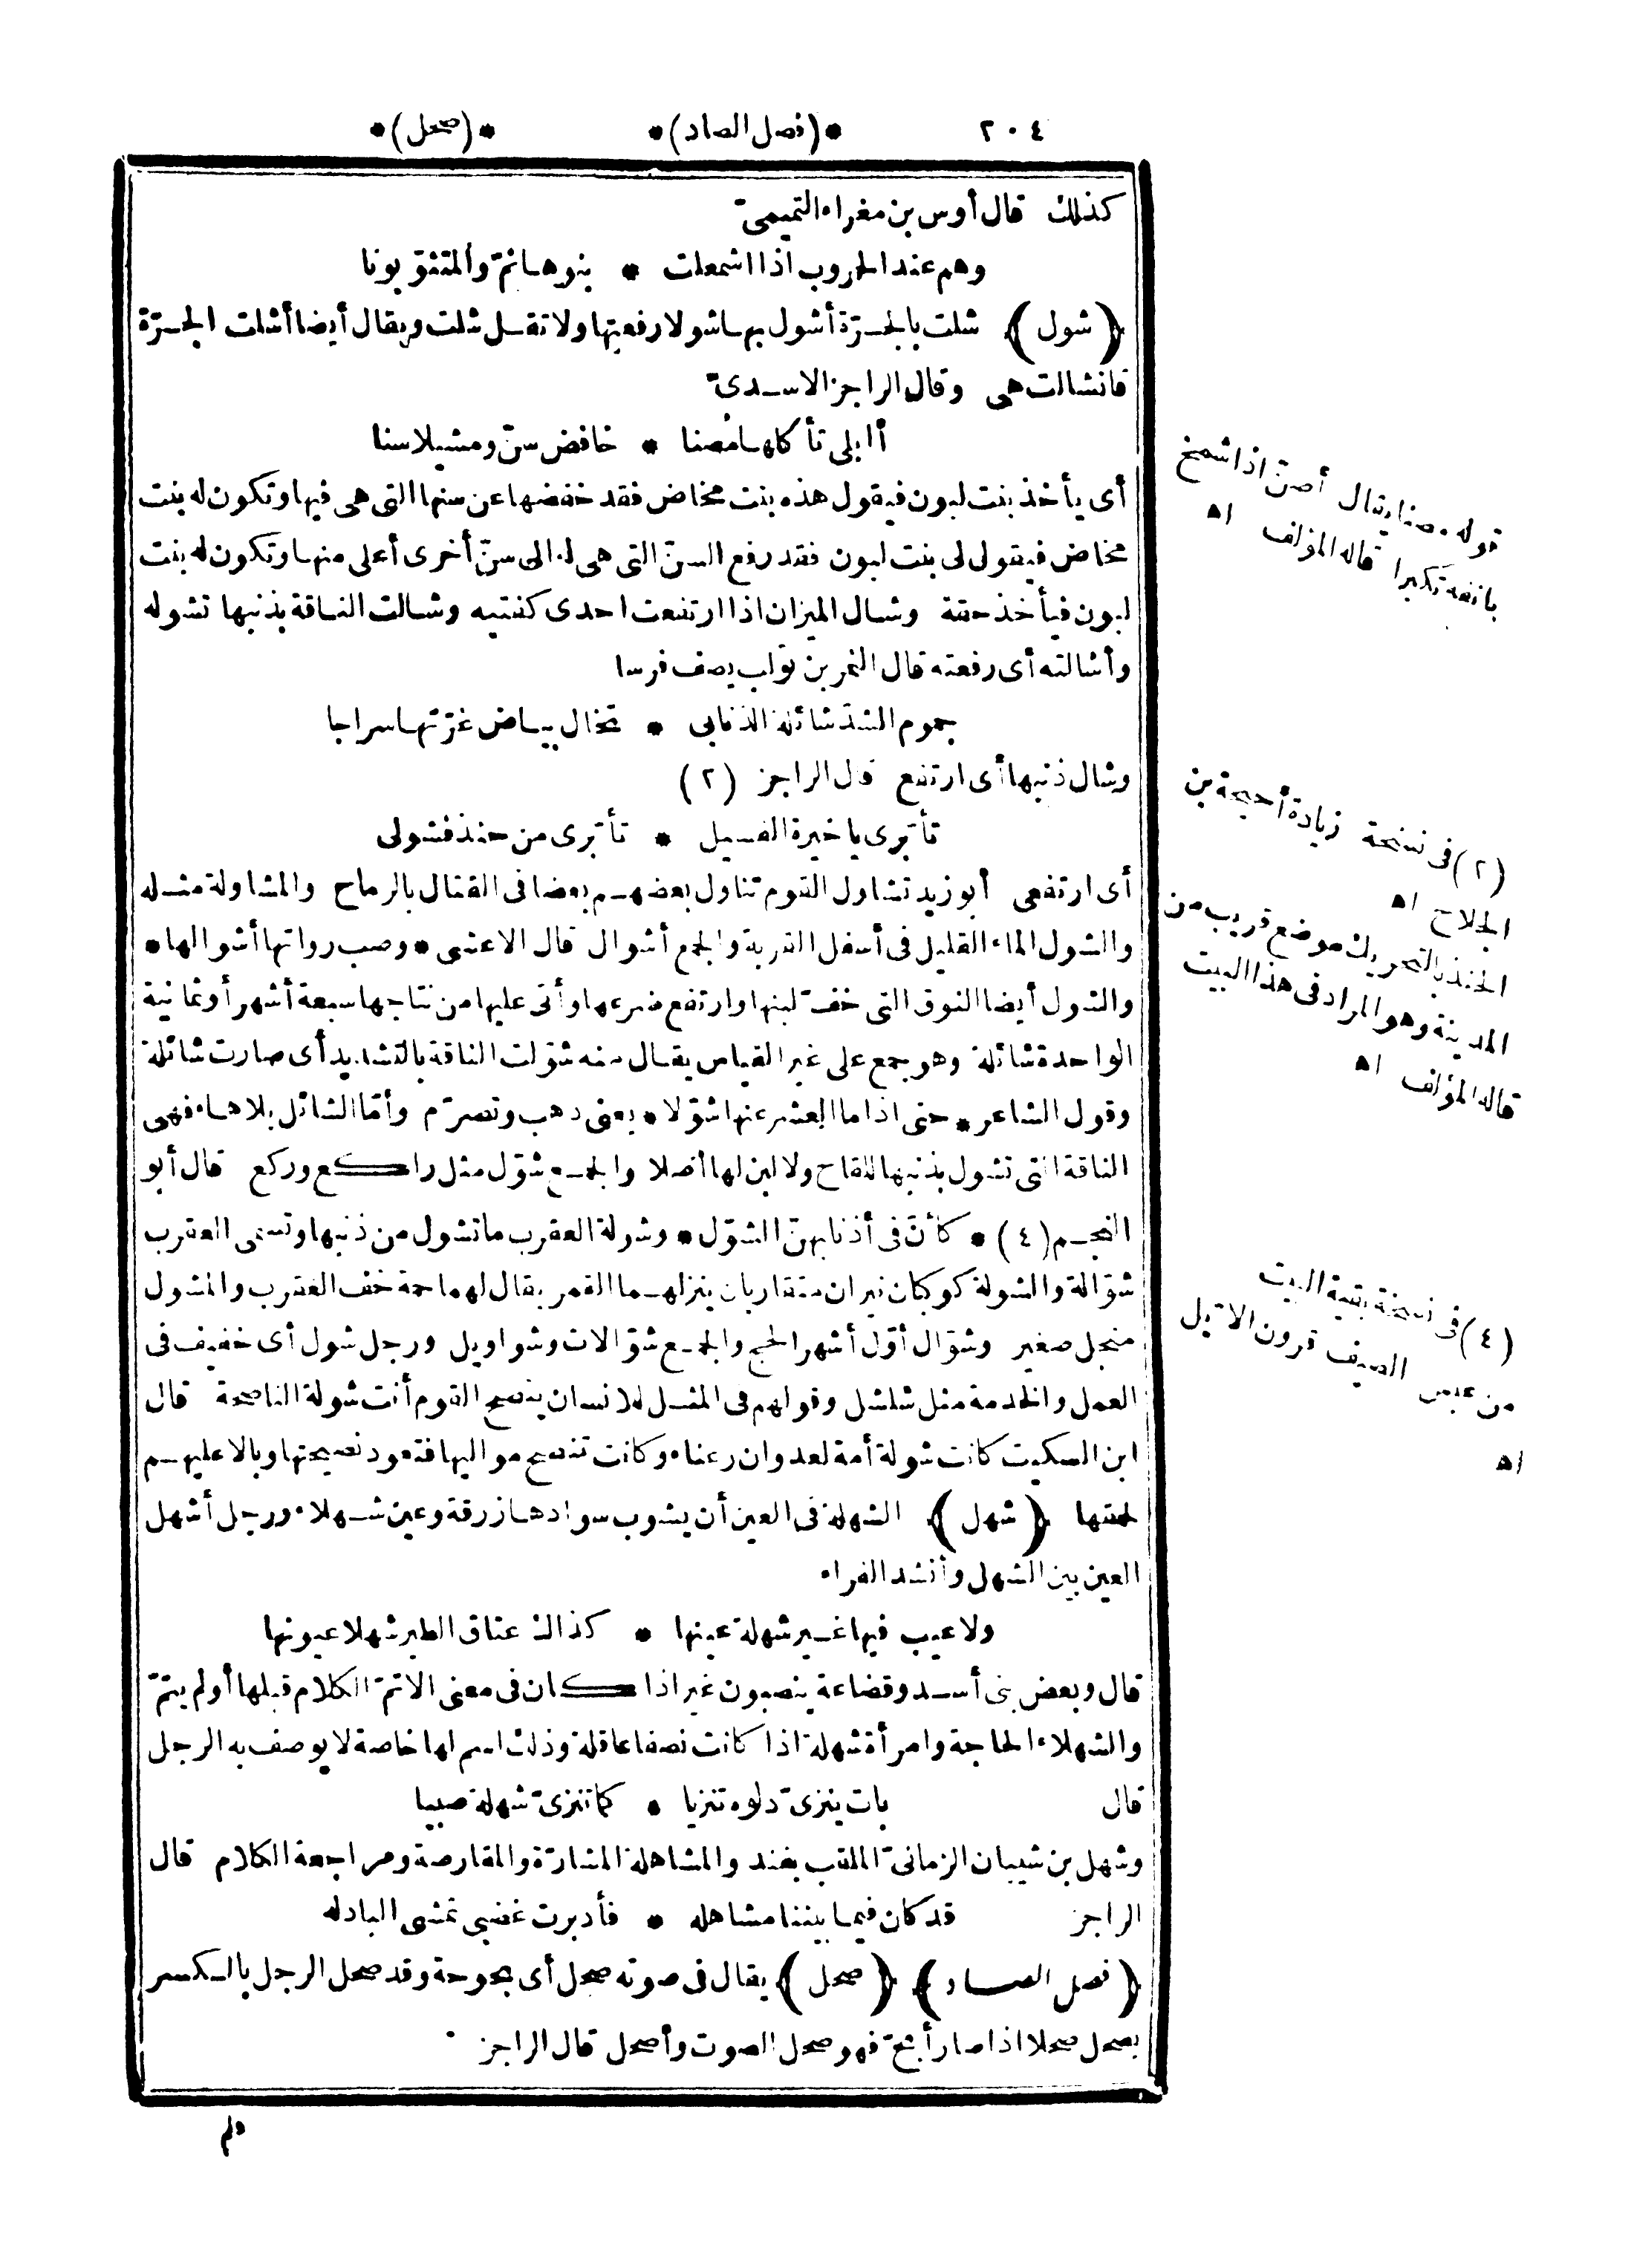 ٢٠٤ *(فصل الصاد)* *(صحل)*
كذلك قال أوس بن مغراء التميميّ
وهم عند الحروب اذا اشمعلت * بنوها ثمّ والمتثوّبونا
﴿شول﴾ شلت بالجرّة أشول بها شولا رفعتها ولا تقل شلت ويقال أيضا أشلت الجرّة
فانشالت هى وقال الراجز الاسدىّ
أابلى تأكلها مُصنا * خافض سنّ ومشيلا سنا
أى يأخذ بنت لبون فيقول هذه بنت مخاض فقد خفضها عن سنها التى هى فيها وتكون له بنت
مخاض فيقول لى بنت لبون فقد رفع السنّ التى هى له الى سنّ أخرى أعلى منها وتكون له بنت
لبون فيأخذ حقة وشال الميزان اذا ارتفعت احدى كفتيه وشالت الناقة بذنبها تشوله
وأشالته أى رفعته قال النمر بن تولب يصف فرسا
جموم الشدّ شائلة الذنابى * تخال بياض غرّتها سراجا
وشال ذنبها أى ارتفع قال الراجز (٢)
تأبرى يا خيرة الفسيل * تأبرى من حنذ فشولى
أى ارتفعى أبو زيد تشاول القوم تناول بعضهم بعضا فى القتال بالرماح والمشاولة مثله
والشول الماء القليل فى أسفل القربة والجمع أشوال قال الاعشى * وصب رواتها أشوالها *
والشول أيضا النوق التى خفّ لبنها وارتفع ضرعها وأتى عليها من نتاجها سبعة أشهر أو ثمانية
الواحدة شائلة وهو جمع على غير القياس يقال منه شوّلت الناقة بالتشديد أى صارت شائلة
وقول الشاعر * حتى اذا ما العشر عنها شوّلا * يعنى ذهب وتصرّم وأمّا الشائل بلا هاء فهى
الناقة التى تشول بذنبها للقاح ولا لبن لها أصلا والجمع شوّل مثل راكع وركع قال أبو
النجم (٤) * كأنّ فى أذنابهنّ الشوّل * وشولة العقرب ما تشول من ذنبها وتسمى العقرب
شوّالة والشولة كوكبان نيران متقاربان ينزلهما القمر يقال لهما حمة خلف العقرب والمشول
منجل صغير وشوّال أوّل أشهر الحج والجمع شوّالات وشواويل ورجل شول أى خفيف فى
العمل والخدمة مثل شلشل وقولهم فى المثل للانسان ينصح القوم أنت شولة الناصحة قال
ابن السكيت كانت شولة أمة لعدوان رعناء وكانت تنصح مواليها فتعود نصيحتها وبالا عليهم
لحمقها ﴿شهل﴾ الشهلة فى العين أن يشوب سوادها زرقة وعين شهلاء ورجل أشهل
العين بين الشهل وأنشد الفراء
ولا عيب فيها غير شهلة عينها * كذاك عتاق الطير شهلا عيونها
قال وبعض بنى أسد وقضاعة ينصبون غير اذا كان فى معنى الا تمّ الكلام قبلها أو لم يتمّ
والشهلاء الحاجة وامرأة شهلة اذا كانت نصفا عاقلة وذلك اسم لها خاصة لا يوصف به الرجل
قال بات ينزىّ دلوه تنزيا * كما تنزىّ شهلة صبيا
وشهل بن شيبان الزمانىّ الملقب بفند والمشاهلة المشارّة والمقارصة ومراجعة الكلام قال
الراجز قد كان فيما بيننا مشاهله * فأدبرت غضبى تمشى البادله
﴿فصل الصاد﴾ ﴿صحل﴾ يقال فى صوته صحل أى بحوحة وقد صحل الرجل بالكسر
يصحل صحلا اذا صار أبحّ فهو صحل الصوت وأصحل قال الراجز
فلم
قوله مصنا يقال أصنّ اذا شمخ
بانفه تكبرا قاله المؤلف اه
(٢) فى نسخة زيادة أحيحة بن
الجلاح اه
الحنذ بالتحريك موضع قريب من
المدينة وهو المراد فى هذا البيت
قاله المؤلف اه
(٤) فى نسخة بقية البيت
من عبس الصيف قرون الايل
اه